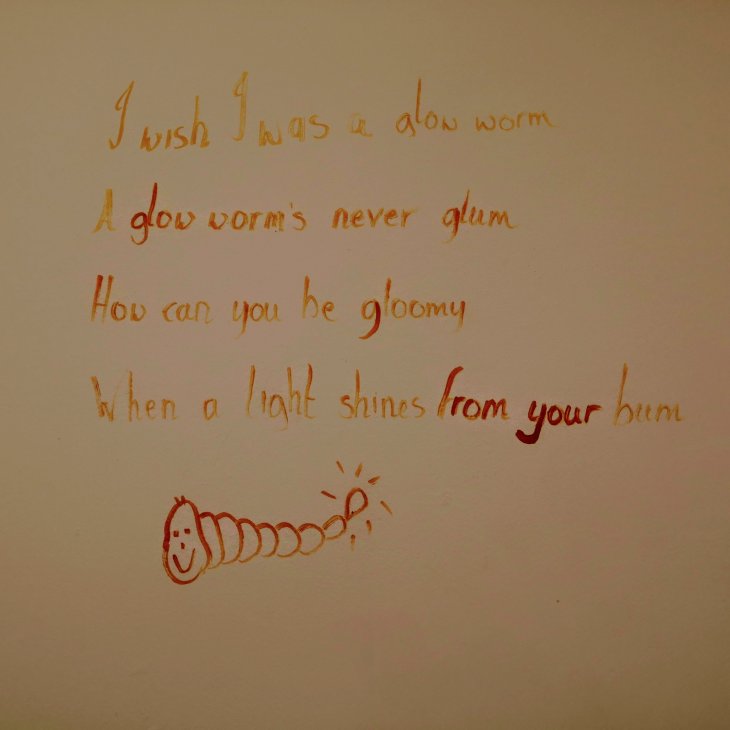 I wish I was a glow worm
A glow worm's never glum
How can you be gloomy
When a light shines from your bum